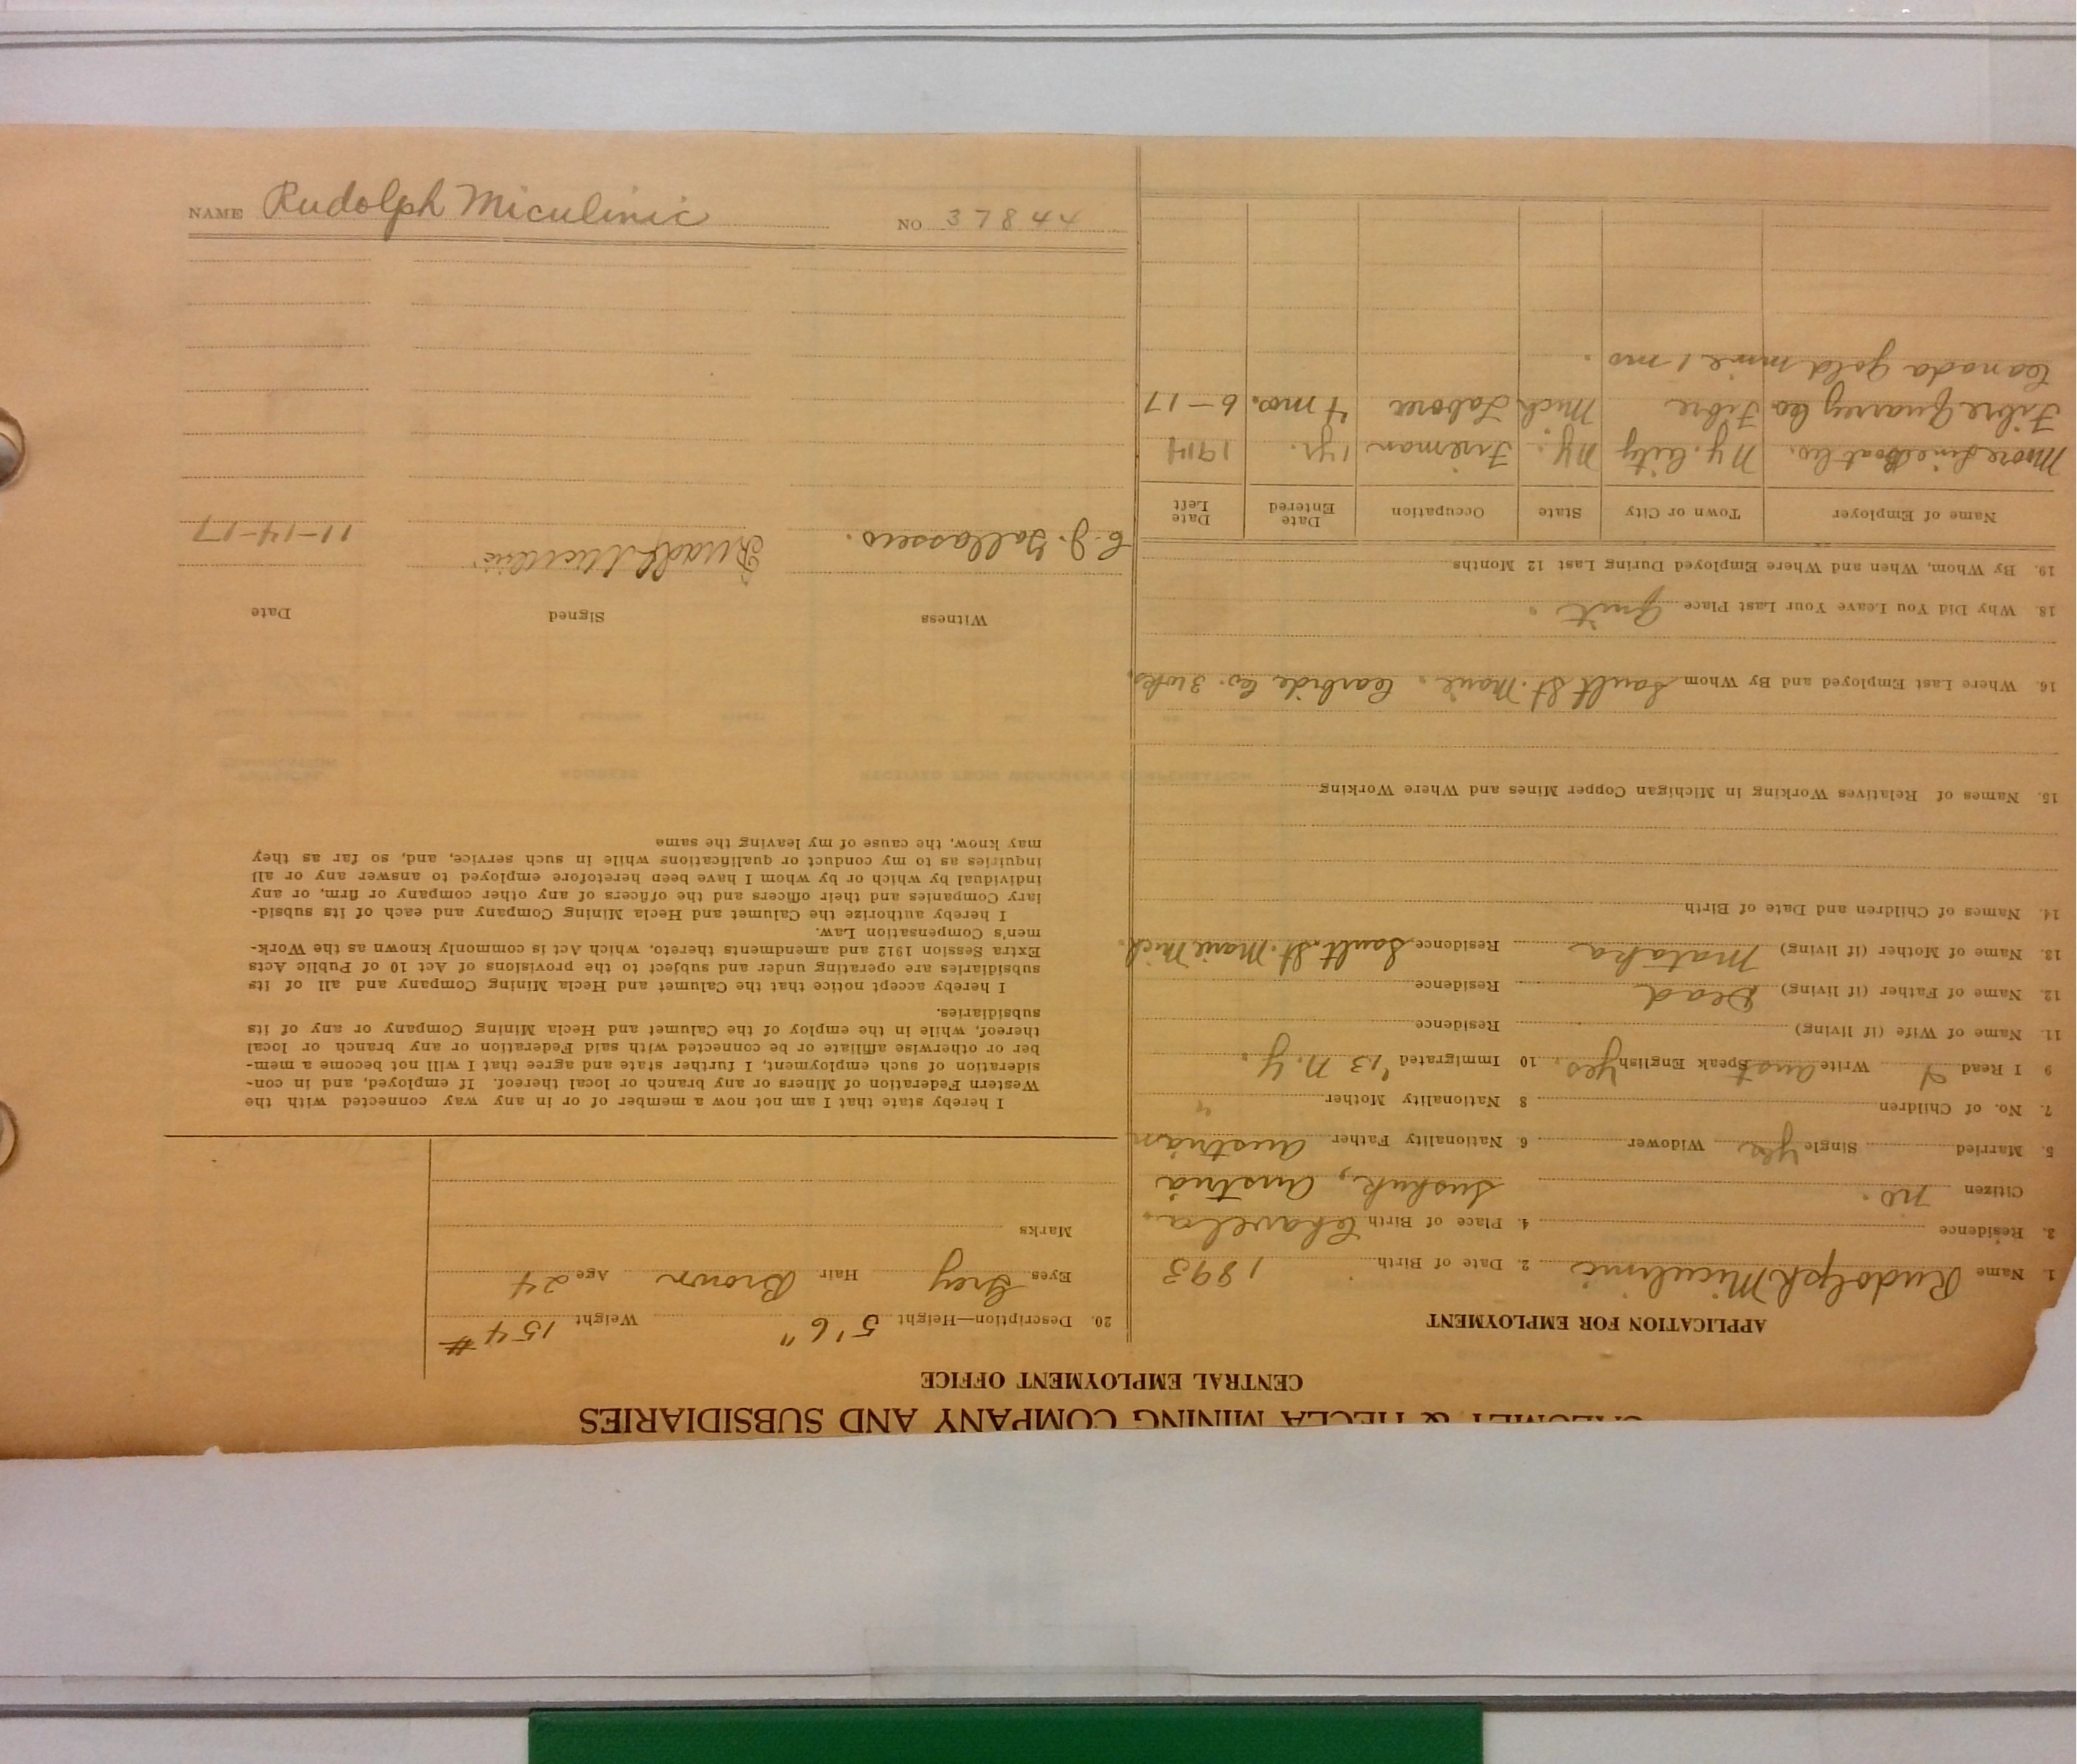 NAME Rudolph Miculinic NO 37844
CALUMET & HECLA MINING COMPANY AND SUBSIDIARIES
CENTRAL EMPLOYMENT OFFICE
APPLICATION FOR EMPLOYMENT
1. Name Rudolph Miculinic 2. Date of Birth 1893
3. Residence 4. Place of Birth Chavela.
Citizen no. Sushuk, Austria
5. Married Single Yes Widower 6 Nationality Father Austrian
7. No. of Children 8 Nationality Mother "
9 I Read I Write Aust Speak English Yes. 10 Immigrated '13 N.Y.
11. Name of Wife (if living) Residence
12. Name of Father (if living) Dead Residence
13. Name of Mother (if living) Residence Sault St. Marie Mich.
14. Names of Children and Date of Birth
15. Names of Relatives Working in Michigan Copper Mines and Where Working
16. Where Last Employed and By Whom Sault St. Marie. Carbide Co. 3 wks.
18. Why Did You Leave Your Last Place Quit.
19. By Whom, When and Where Employed During Last 12 Months
Name of Employer Town or City State Occupation Date Entered Date Left
Moore Line Boat Co. N.Y. City N.Y. Fireman 1 yr. 1914
Fibre Quarrey Co Fibre Mich Laborer 4 mo. 6-17
Canada gold mine 1 mo.
20. Description—Height 5'6" Weight 154#
Eyes Grey Hair Brown Age 24
Marks
I hereby state that I am not now a member of or in any way connected with the
Western Federation of Miners or any branch or local thereof. If employed, and in con-
sideration of such employment, I further state and agree that I will not become a mem-
ber or otherwise affiliate or be connected with said Federation or any branch or local
thereof, while in the employ of the Calumet and Hecla Mining Company or any of its
subsidiaries.
I hereby accept notice that the Calumet and Hecla Mining Company and all of its
subsidiaries are operating under and subject to the provisions of Act 10 of Public Acts
Extra Session 1912 and amendments thereto, which Act is commonly known as the Work-
men's Compensation Law.
I hereby authorize the Calumet and Hecla Mining Company and each of its subsid-
iary Companies and their officers and the officers of any other company or firm, or any
individual by which or by whom I have been heretofore employed to answer any or all
inquiries as to my conduct or qualifications while in such service, and, so far as they
may know, the cause of my leaving the same
Witness Signed Date
Rudolf Miculinic 11-14-17